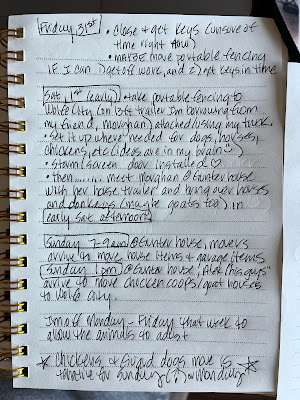 Friday 31st
• Close & get keys (unsure of
time right now)
• MAYBE move portable fencing
IF I can 1) get off work, and 2) get keys in time
Sat, 1st (early) • take portable fencing to
Wolfe City (on 13ft trailer I'm borrowing from
my friend, Meaghan) attached/using my truck.
• set it up where needed for dogs, horses,
chickens, etc (ideas are in my brain)
• storm/screen door installed ♡
• then...... meet Meaghan @ Gunter house
with her horse trailer and bring over horses
and donkeys (maybe goats too) in
early Sat. afternoon
Sunday 7-9am @ Gunter house, movers
arrive to move house items & garage items
Sunday 1pm @ Gunter house, "Alex this guys"
arrive to move chicken coops/goat houses
to Wolfe City.
I'm off Monday - Friday that week to
allow the animals to adjust
☆ Chickens & guard dogs move is ☆
tentative for Sunday (?) or Monday